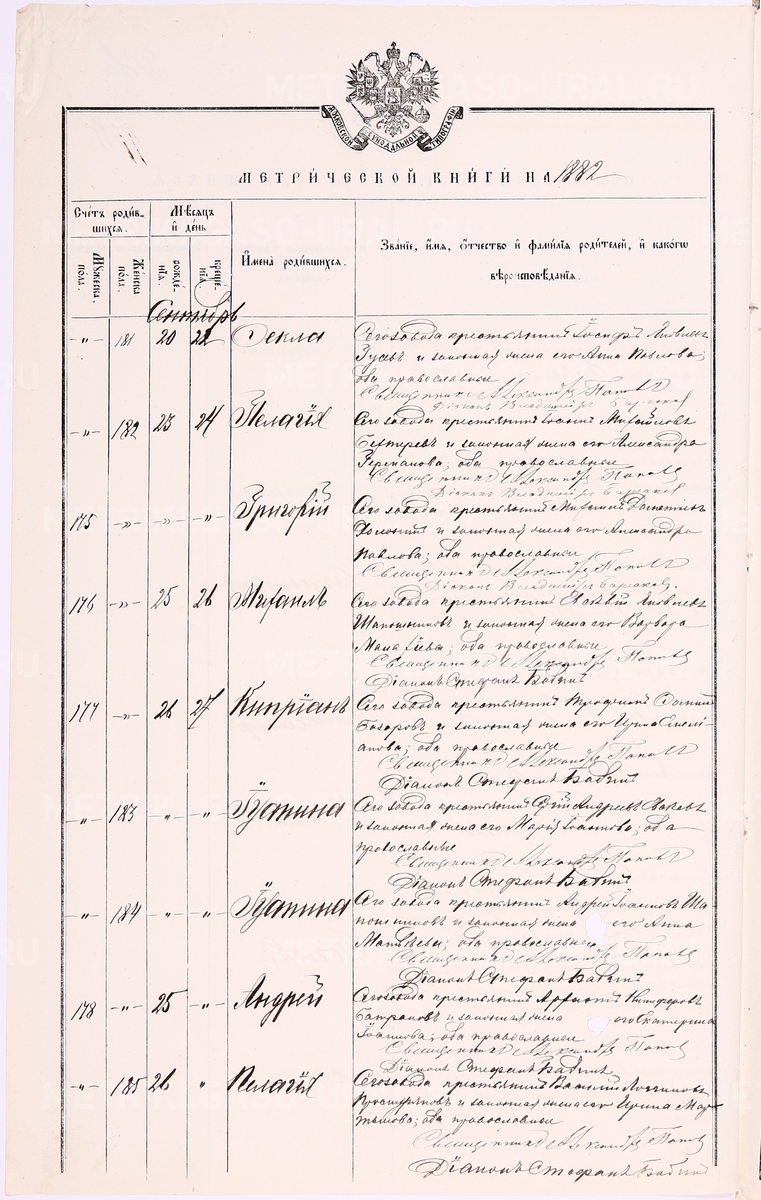 МОСКОВСКОЙ СѴНОДАЛЬНОЙ ТИПОГРАФІИ
МЕТРИ́ЧЕСКОЙ КНИ́ГИ НА 1882
Сче́тъ роди́вшихся.
Мѣ́сяцъ и҆ де́нь
И҆мена̀ роди́вшихся.
Зва́нїе, и҆́мя, ѻ҆́тчество и҆ фами́лїя роди́телей, и҆ како́гѡ вѣроисповѣ́данїѧ.
Мꙋ́жеска по́ла.
Же́нска по́ла.
рожде́нїѧ.
креще́нїѧ
Сентябрь
-„- 181 20 22 Ѳекла Сего завода крестьянинъ Іосифъ Яковлевъ
Гусевъ и законная жена его Анна Павлова;
оба православные
Священникъ Александръ Поповъ
Діаконъ Владиміръ
-„- 182 23 24 Пелагія Сего завода крестьянинъ Михайловъ
и законная жена его Александра
Германова; оба православные
Священникъ Александръ Поповъ
Діаконъ Владиміръ
175 -„- -„- „ Григорій Сего завода крестьянинъ
и законная жена его Александра
Павлова; оба православные
Священникъ Александръ Поповъ
Діаконъ Владиміръ
176 -„- 25 26 Михаилъ Сего завода крестьянинъ Яковлевъ
Шапошниковъ и законная жена его Варвара
оба православные
Священникъ Александръ Поповъ
Діаконъ Стефанъ Бабинъ
177 -„- 26 27 Кипріанъ Сего завода крестьянинъ Трофимъ
и законная жена его Ирина Емелі-
анова; оба православные
Священникъ Александръ Поповъ
Діаконъ Стефанъ Бабинъ
-„- 183 -„- „ Іустина Сего завода крестьянинъ Сергій Андреевъ
и законная жена его Марія оба
православные
Священникъ Александръ Поповъ
Діаконъ Стефанъ Бабинъ
-„- 184 -„- „ Іустина Сего завода крестьянинъ Андрей Іоанновъ Ша-
пошниковъ и законная жена его Анна
Матвѣева; оба православные
Священникъ Александръ Поповъ
Діаконъ Стефанъ Бабинъ
178 -„- 25 -„- Андрей Сего завода крестьянинъ Никифоровъ
и законная жена его Екатерина
Іоаннова; оба православные
Священникъ Александръ Поповъ
Діаконъ Стефанъ Бабинъ
-„- 185 26 „ Пелагія Сего завода крестьянинъ Василій Логгиновъ
и законная жена его Ирина Мар-
тынова; оба православные
Священникъ Александръ Поповъ
Діаконъ Стефанъ Бабинъ